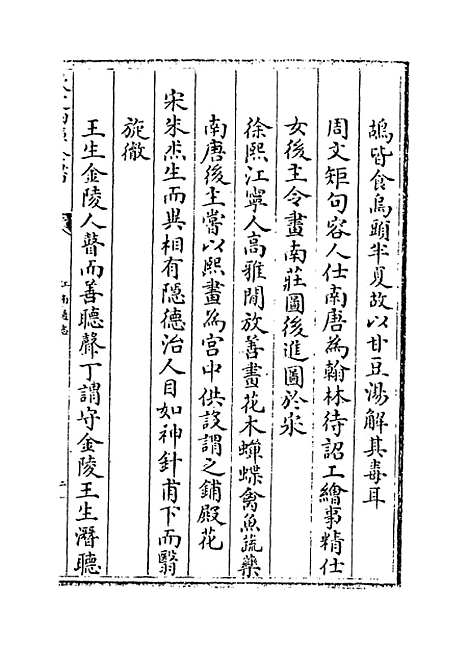 鴣皆食烏頭半夏故以甘豆湯解其毒耳
周文矩句容人仕南唐為翰林待詔工繪事精仕
女後主令畫南莊圖後進圖於宋
徐熙江寧人高雅閒放善畫花木蟬蝶禽魚蔬藥
南唐後主嘗以熙畫為宫中供設謂之鋪殿花
宋朱杰生而異相有隱德治人目如神針甫下而翳
旋徹
王生金陵人瞽而善聽聲丁謂守金陵王生潛聽
江南通志